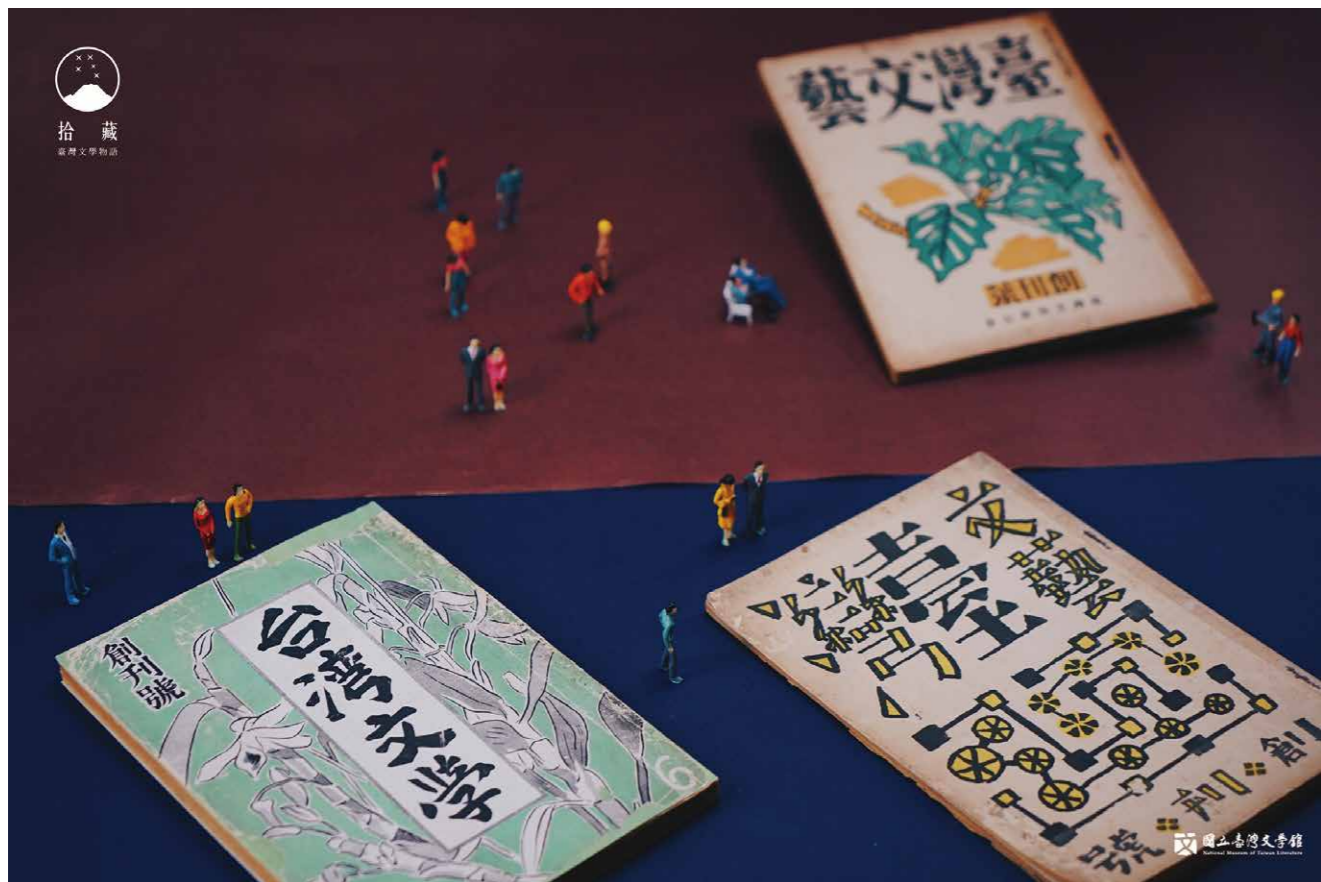 拾藏
臺灣文學物語
臺灣文藝
創刊號
創刊號
台湾文学
6
文藝
臺灣
創刊號
國立臺灣文學館
National Museum of Taiwan Literature